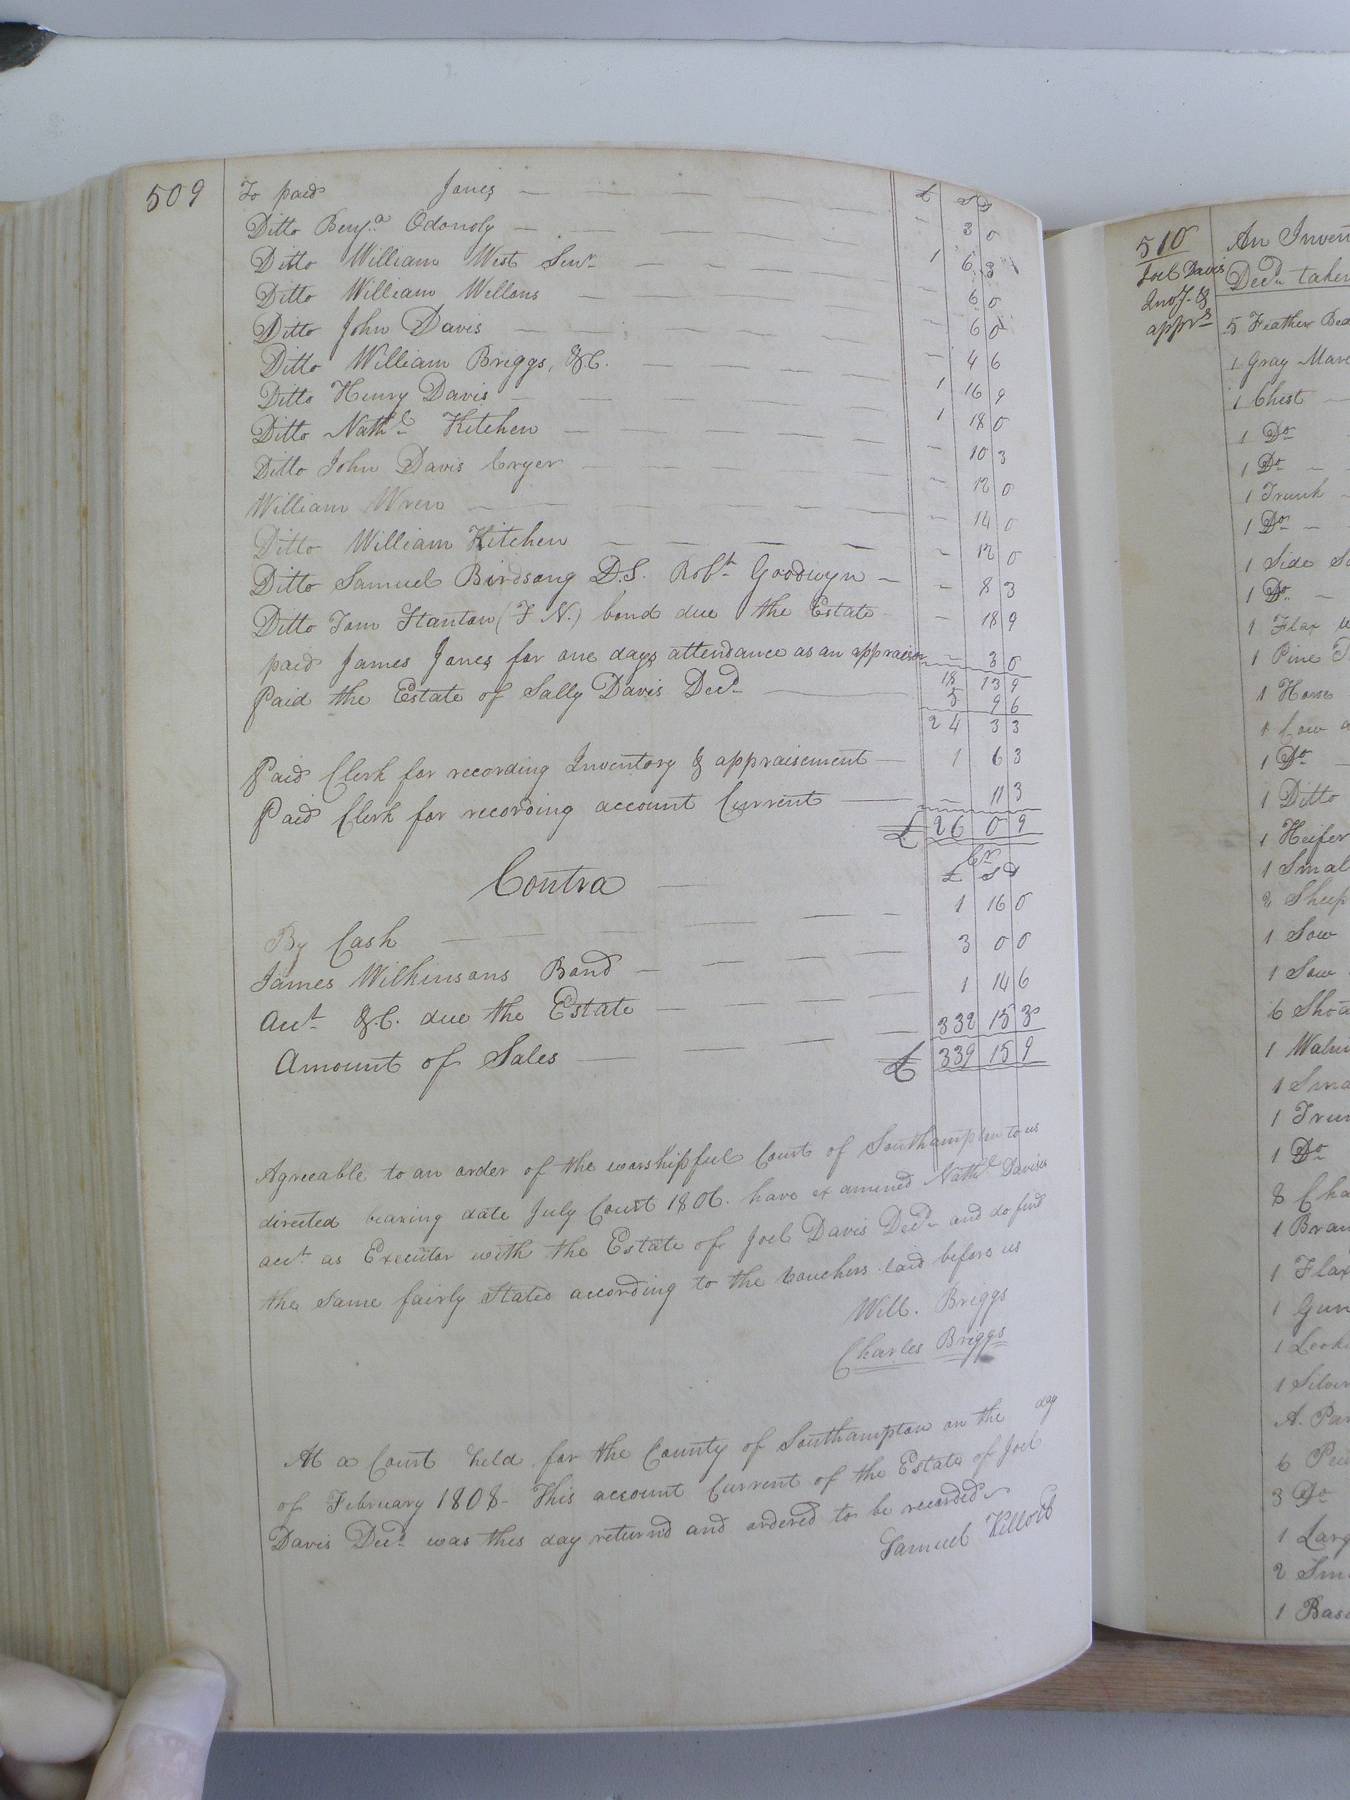 509
£ S D
To paid Jones — — — — — 3 0
Ditto Benja. Odonoly — — — — 1 6 3
Ditto William West Senr. — — — — 6 0
Ditto William Wellons — — — — 6 0
Ditto John Davis — — — — 4 6
Ditto William Briggs, &C. — — — 1 16 9
Ditto Henry Davis — — — — 1 18 0
Ditto Nathl. Kitchen — — — — 10 3
Ditto John Davis Cryer — — — — 12 0
William Wren — — — — 14 0
Ditto William Kitchen — — — — 12 0
Ditto Samuel Birdsong D.S. Robt. Goodwyn — — 8 3
Ditto Tom Stanton (F N.) bond due the Estate — 18 9
paid James Jones for one days attendance as an appraiser — 3 0
18 13 9
Paid the Estate of Sally Davis Decd. — 5 9 6
24 3 3
Paid Clerk for recording Inventory & appraisement — 1 6 3
Paid Clerk for recording account Current — — 11 3
£ 26 0 9
Contra — Cr.
£ S D
By Cash — — — — 1 16 0
James Wilkinsons Bond — — — 3 0 0
Acct. &.C. due the Estate — — — 1 14 6
Amount of Sales — — — 332 15 3
£ 339 15 9
Agreeable to an order of the worshipful Court of Southampton to us
directed bearing date July Court 1806. have examined Nathl. Davis's
acct. as Executor with the Estate of Joel Davis Decd. and do find
the same fairly Stated according to the Vouchers laid before us
Will. Briggs
Charles Briggs
At a Court held for the County of Southampton on the day
of February 1808. This account Current of the Estate of Joel
Davis Decd. was this day returnd and ordered to be recorded
Samuel Kello CC
510
Joel Davis
Invy. &
apprs.
An Inven
Decd. taken
5 Feather Bed
1 Gray Mare
1 Chest —
1 Do.
1 Do. —
1 Trunk —
1 Do. —
1 Side Sa
1 Do. —
1 Flax w
1 Pine T
1 Horse
1 Cow a
1 Do. —
1 Ditto
1 Heifer
1 Smal
2 Sheep
1 Sow
1 Sow
6 Shoa
1 Walnu
1 Sma
1 Trun
1 Do.
8 Cha
1 Bran
1 Flax
1 Gun
1 Looki
1 Silver
A. Par
6 Pew
3 Do
1 Larg
2 Sma
1 Baso